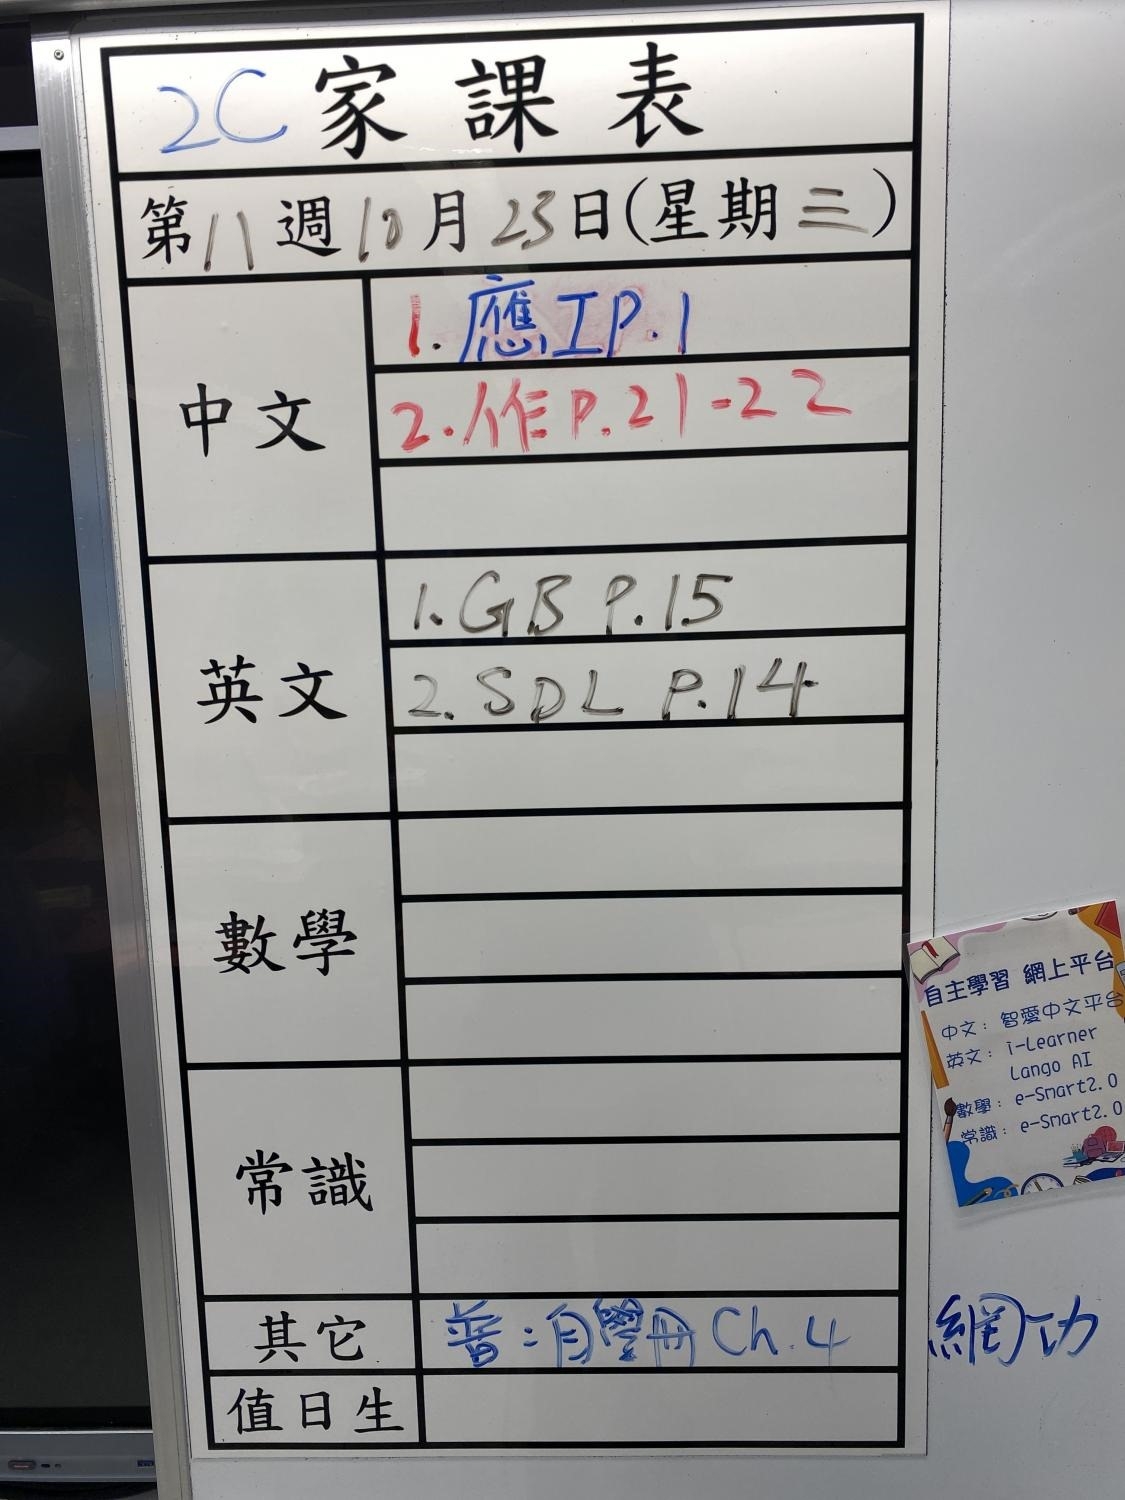 2C 家課表
第 11 週 10 月 23 日(星期 三)
中文
1. 應 I P.1
2. 作 P.21-22
英文
1. GB P.15
2. SDL P.14
數學
常識
其它
普：自學冊 Ch.4
網功
值日生
自主學習 網上平台
中文：智愛中文平台
英文：i-Learner
Lango AI
數學：e-Smart2.0
常識：e-Smart2.0